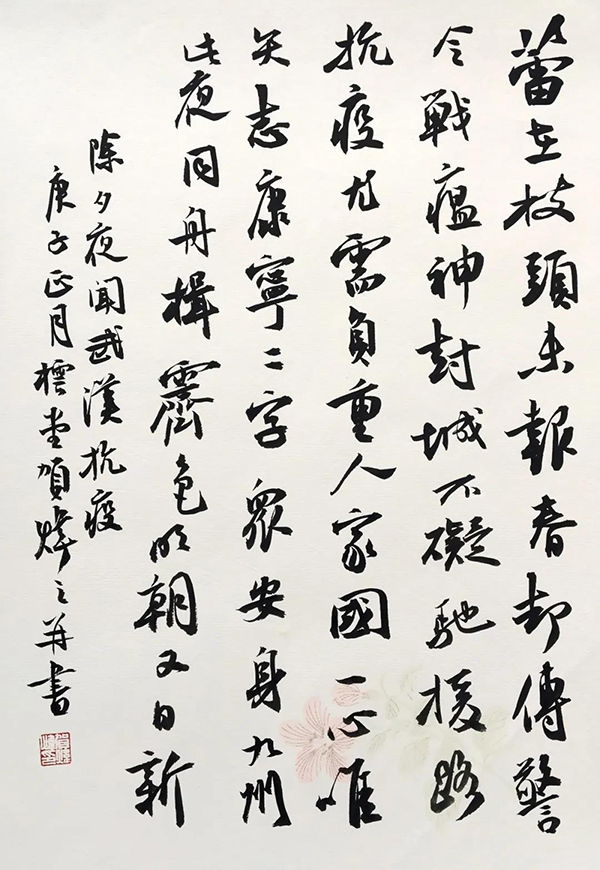 蕾在枝頭未報春却傳警
令戰瘟神封城不礙馳援路
抗疫尤需負重人家國一心唯
矢志康寧二字眾安身九州
此夜同舟楫霽色明朝又日新
除夕夜聞武漢抗疫
庚子正月堂賀煒之并書